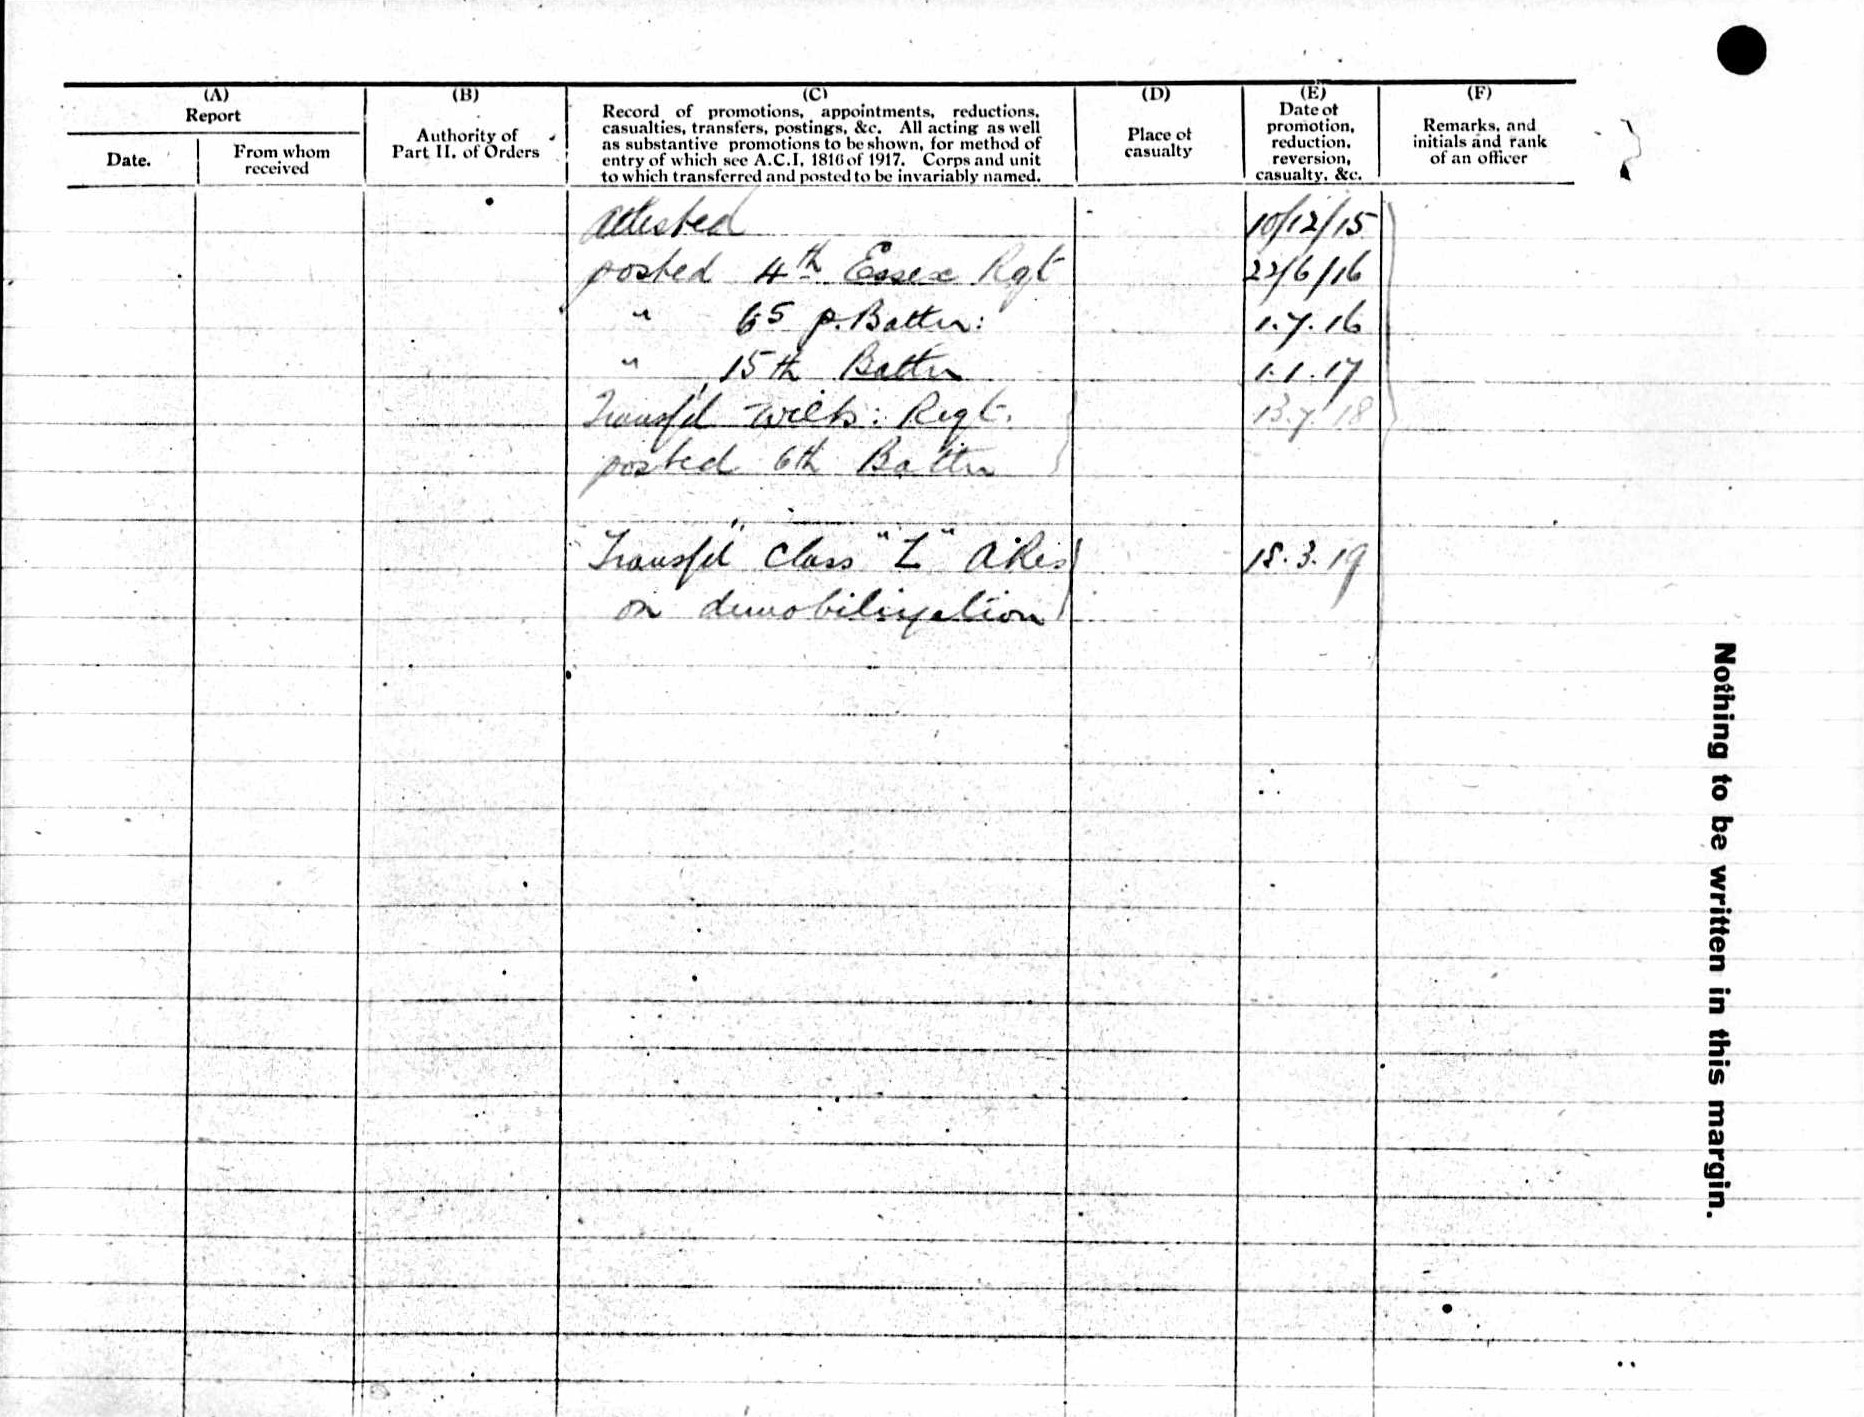 (A)
Report
Date.
From whom
received
(B)
Authority of
Part II. of Orders
(C)
Record of promotions, appointments, reductions,
casualties, transfers, postings, &c. All acting as well
as substantive promotions to be shown, for method of
entry of which see A.C.I. 1816 of 1917. Corps and unit
to which transferred and posted to be invariably named.
(D)
Place of
casualty
(E)
Date of
promotion,
reduction,
reversion,
casualty, &c.
(F)
Remarks, and
initials and rank
of an officer
Attested 10/12/15
posted 4th Essex Rgt 22/6/16
" 65 p. Battn: 1.7.16
" 15th Battn 1.1.17
Transf'd Wilts: Regt. 13.7.18
posted 6th Battn
Transfd Class "Z" A Res 18.3.19
on demobilization
Nothing to be written in this margin.